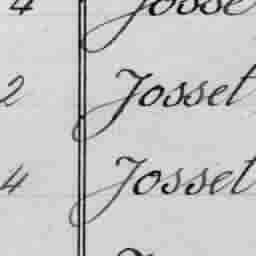 4 Josse
2 Josset
4 Josset